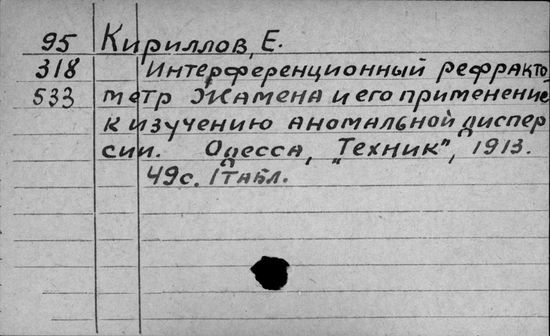 95 Кириллов, Е.
318 Интерференционный рефракто
533 метр Жамена и его применение
к изучению аномальной диспер
сии. Одесса, "Техник", 1913.
49с. 1 табл.